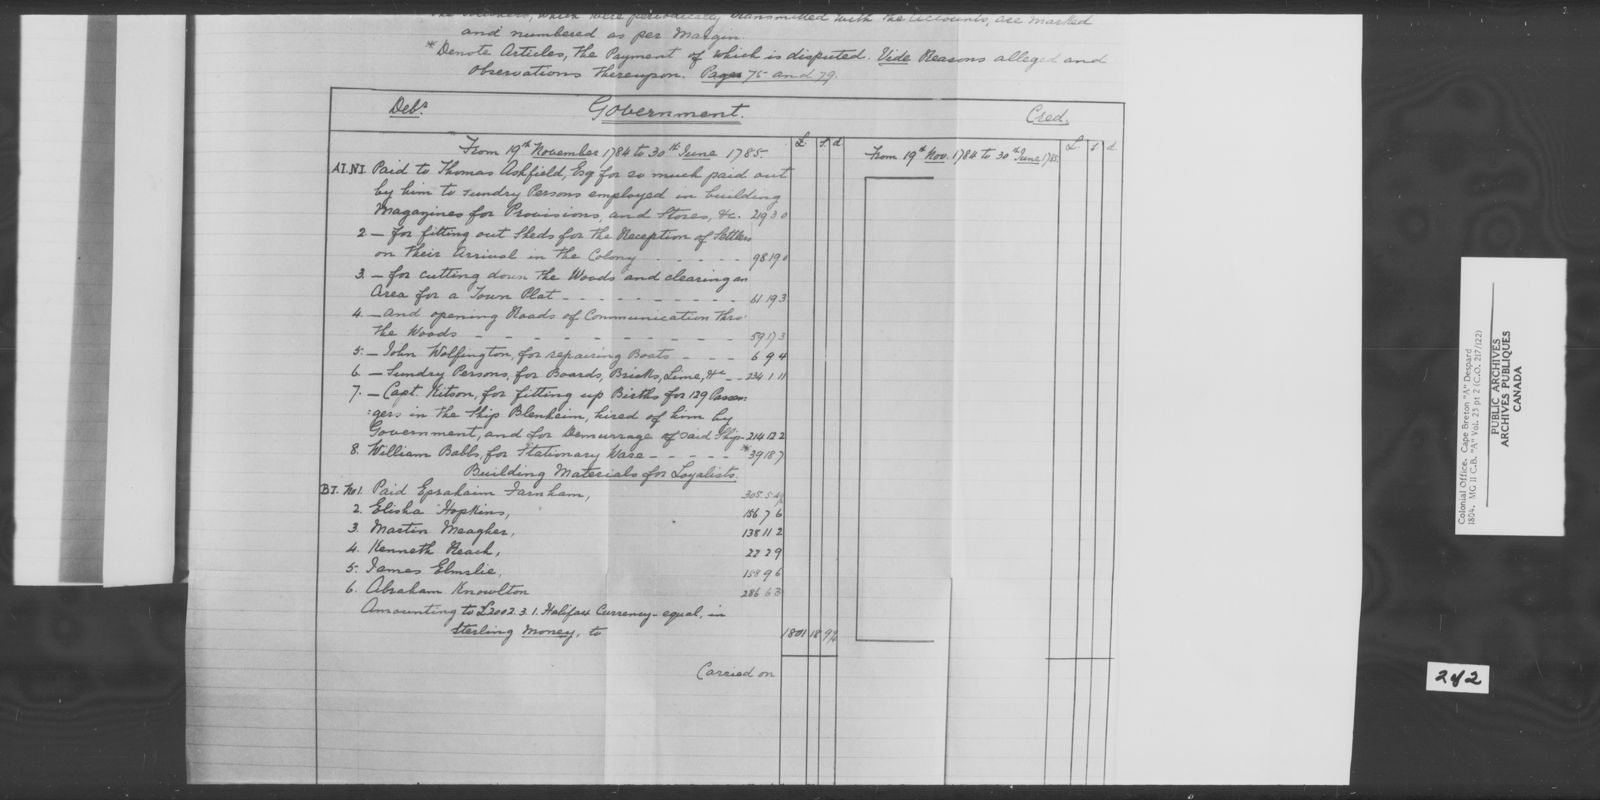 The Vouchers, which were periodically transmitted with the Accounts, are marked
and numbered as per Margin.
*Denote Articles, the Payment of which is disputed. Vide Reasons alleged and
Observations thereupon. Pages 75 and 79.
Debr. Government. Cred.
From 19th November 1784 to 30th June 1785. £ s. d. From 19th Nov. 1784 to 30th June 1785 £ s. d.
AI. NI Paid to Thomas Ashfield, Esq for so much paid out
by him to sundry Persons employed in building
Magazines for Provisions, and Stores, &c. 219 3 0
2 — for fitting out Sheds for the Reception of Settlers
on their Arrival in the Colony - - - - - 98 19 0
3. — for cutting down the Woods and clearing an
Area for a Town Plat - - - - - - - - 61 19 3
4. — and opening Roads of Communication thro'
the Woods - - - - - - - - - - 59 17 3
5. — John Wolfington, for repairing Boats - - - - 6 9 4
6. — Sundry Persons, for Boards, Bricks, Lime, &c - - 234 1 11
7. — Capt. Kitson, for fitting up Births for 129 Passen:
:gers in the Ship Blenheim, hired of him by
Government, and for Demurrage of said Ship - 214 12 2
8. William Babbs, for Stationary Ware - - - - - *39 18 7
Building Materials for Loyalists.
BI. No 1. Paid Eprahaim Farnham, 305 5
2. Elisha Hopkins, 156 7 6
3. Martin Meagher, 138 11 2
4. Kenneth Reach, 22 2 9
5. James Elmslie, 158 9 6
6. Abraham Knowlton 286 6 3
Amounting to £2002. 3. 1. Halifax Currency - equal, in
Sterling Money, to 1801 18 9
Carried on
Colonial Office. Cape Breton "A" Despard
1804. MG 11 C.B. "A" Vol. 25 pt 2 (C.O. 217/122)
PUBLIC ARCHIVES
ARCHIVES PUBLIQUES
CANADA
2 of 2